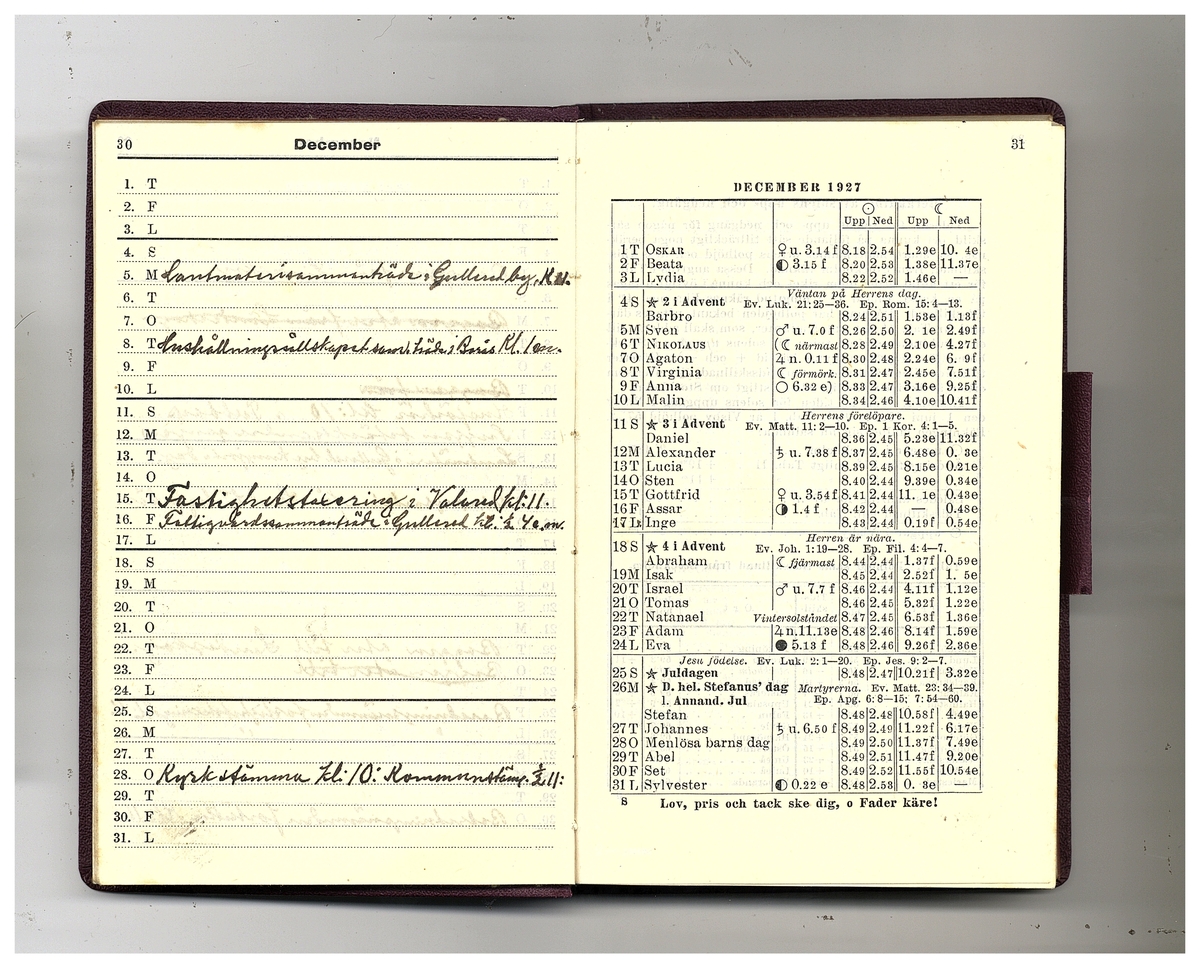 30 December
1. T
2. F
3. L
4. S
5. M Lantmäterisammanträde i Gullered by, Kl. 11.
6. T
7. O
8. T Hushållningssällskapet samträde i Borås Kl. 1 em.
9. F
10. L
11. S
12. M
13. T
14. O
15. T Fastighetstaxering i Valared kl. 11.
16. F Fattigvårdssammanträde i Gullered kl. ½ 4 e.m.
17. L
18. S
19. M
20. T
21. O
22. T
23. F
24. L
25. S
26. M
27. T
28. O Kyrkstämma kl: 10: Kommunstäm. ½ 11:
29. T
30. F
31. L
31
DECEMBER 1927
☉ ☾
Upp Ned Upp Ned
1 T OSKAR ♀ u. 3.14 f 8.18 2.54 1.29e 10. 4e
2 F Beata ◐ 3.15 f 8.20 2.53 1.38e 11.37e
3 L Lydia 8.22 2.52 1.46e —
Väntan på Herrens dag.
4 S ★ 2 i Advent Ev. Luk. 21: 25—36. Ep. Rom. 15: 4—13.
Barbro 8.24 2.51 1.53e 1.13f
5 M Sven ♂ u. 7.0 f 8.26 2.50 2. 1e 2.49f
6 T NIKOLAUS (☾ närmast 8.28 2.49 2.10e 4.27f
7 O Agaton ♃ n. 0.11 f 8.30 2.48 2.24e 6. 9f
8 T Virginia ☾ förmörk. 8.31 2.47 2.45e 7.51f
9 F Anna ○ 6.32 e) 8.33 2.47 3.16e 9.25f
10 L Malin 8.34 2.46 4.10e 10.41f
Herrens förelöpare.
11 S ★ 3 i Advent Ev. Matt. 11: 2—10. Ep. 1 Kor. 4: 1—5.
Daniel 8.36 2.45 5.23e 11.32f
12 M Alexander ♄ u. 7.38 f 8.37 2.45 6.48e 0. 3e
13 T Lucia 8.39 2.45 8.15e 0.21e
14 O Sten 8.40 2.44 9.39e 0.34e
15 T Gottfrid ♀ u. 3.54 f 8.41 2.44 11. 1e 0.43e
16 F Assar ◑ 1.4 f 8.42 2.44 — 0.48e
17 L Inge 8.43 2.44 0.19f 0.54e
Herren är nära.
18 S ★ 4 i Advent Ev. Joh. 1: 19—28. Ep. Fil. 4: 4—7.
Abraham ☾ fjärmast 8.44 2.44 1.37f 0.59e
19 M Isak 8.45 2.44 2.52f 1. 5e
20 T Israel ♂ u. 7.7 f 8.46 2.44 4.11f 1.12e
21 O Tomas 8.46 2.45 5.32f 1.22e
22 T Natanael Vintersolståndet 8.47 2.45 6.53f 1.36e
23 F Adam ♃ n. 11.13e 8.48 2.46 8.14f 1.59e
24 L Eva ● 5.13 f 8.48 2.46 9.26f 2.36e
Jesu födelse. Ev. Luk. 2: 1—20. Ep. Jes. 9: 2—7.
25 S ★ Juldagen 8.48 2.47 10.21f 3.32e
26 M ★ D. hel. Stefanus' dag Martyrerna. Ev. Matt. 23: 34—39.
l. Annand. Jul Ep. Apg. 6: 8—15; 7: 54—60.
Stefan 8.48 2.48 10.58f 4.49e
27 T Johannes ♄ u. 6.50 f 8.49 2.49 11.22f 6.17e
28 O Menlösa barns dag 8.49 2.50 11.37f 7.49e
29 T Abel 8.49 2.51 11.47f 9.20e
30 F Set 8.49 2.52 11.55f 10.54e
31 L Sylvester ◐ 0.22 e 8.48 2.53 0. 3e —
8 Lov, pris och tack ske dig, o Fader käre!